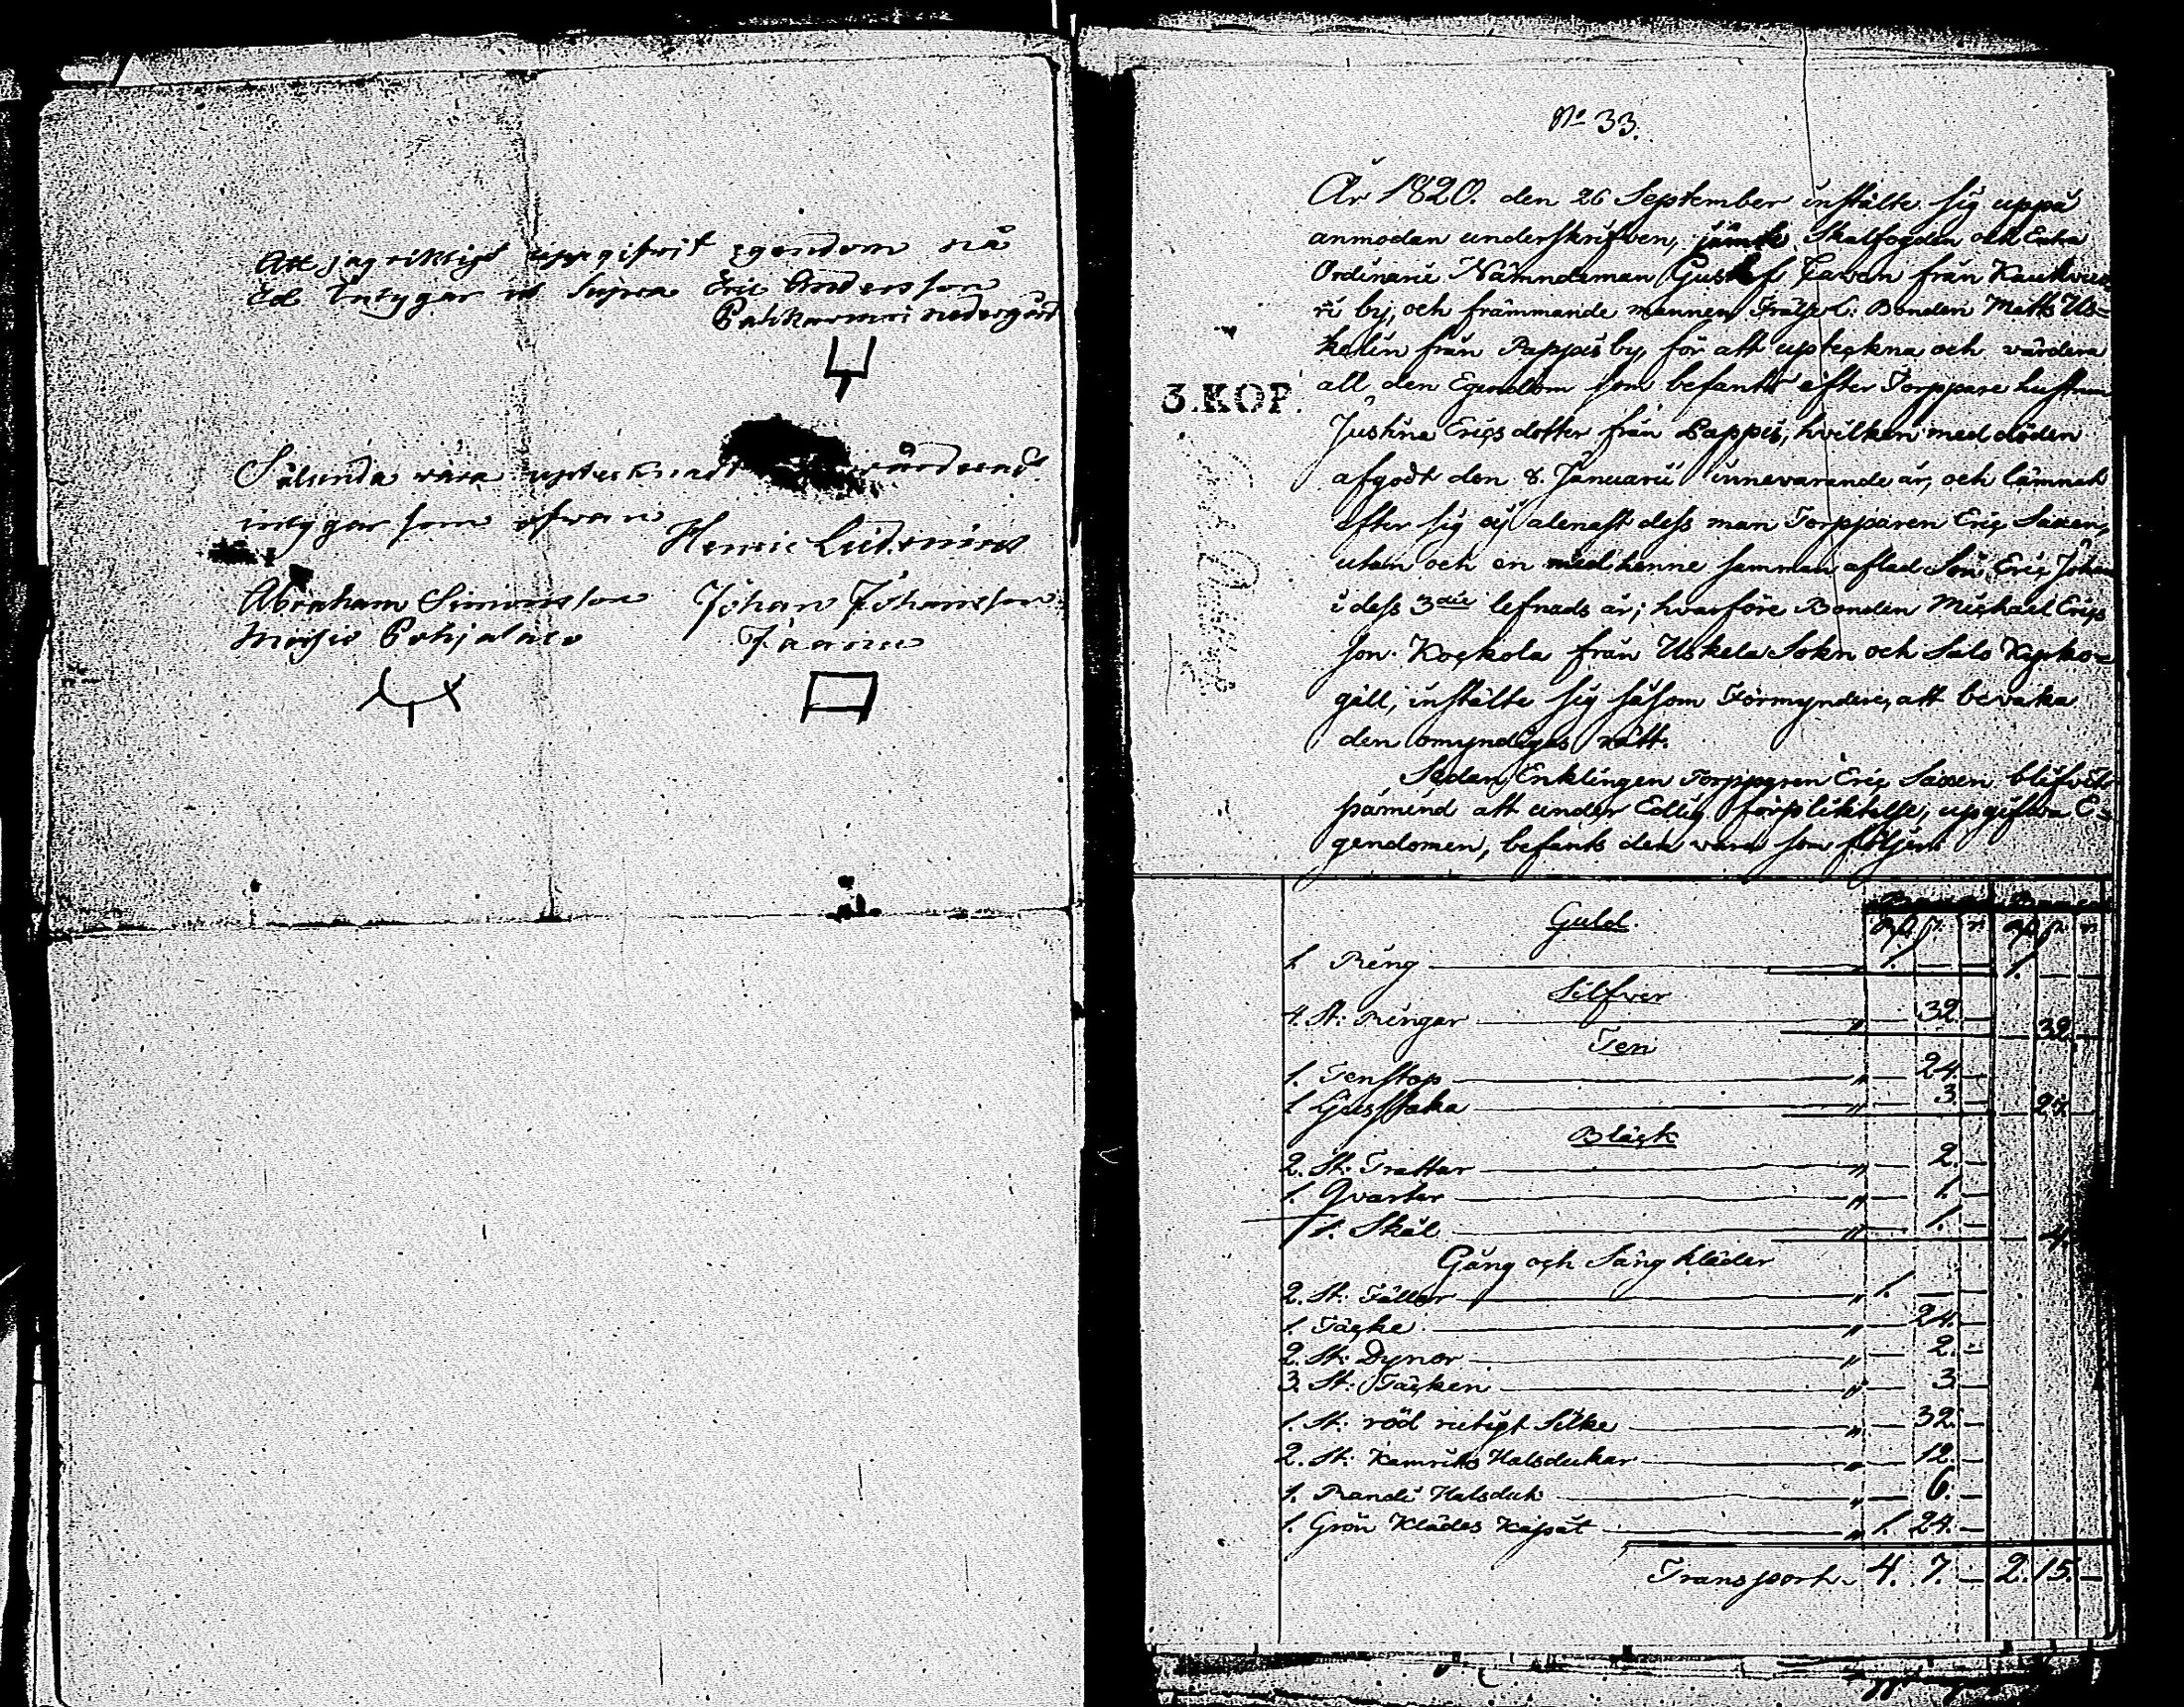 Att jag riktigt uppgifvit egendom nå
Ed Intygar ut Supra Eric Andersson
nedergård
Sålunda vara uptecknadt värderadt
intygar som ofvan
Henric
Abraham Simonsson Johan Johansson
No 33.
År 1820. den 26 September instälte sig uppå
anmodan underskrifven, jämte Skalfogden och Extra
Ordinarie Nämndeman Gustaf från
by, och främmande mannen Frälse L: Bonden Matts Us=
kelin från Pappis by, för att upteckna och värdera
all den Egendom som befants efter Torppare hustrun
3.KOP.
Justina Erics dotter från Pappis, hvilken med döden
afgådt den 8. Januarii innevarande år, och lämnat
efter sig ej allenast dess man Torpparen Eric Saxen,
utan och en med henne samman aflad Son, Eric Johan
i dess 3die lefnads år; hvarföre Bonden Michael Erics
son Kockola från Uskela Sokn och Salo Kyrko=
gäll, instälte sig såsom Förmyndere, att bevaka
den omyndiges rätt.
Sedan Enklingen Torpparen Eric Saxen blifvit
påmind att under Edlig förpliktelse, upgifva E=
gendomen, befants den vara som följer:
Guld.
1. Ring 1. — — 1. — —
Silfver
4. St: Ringar " — 32 — — 32. —
Ten
1. Tenstop " — 24. —
1 Ljusstaka " — 3. — — 27. —
Bläck
2. St: Trattar " — 2. —
1. Qvarter " — 1. —
1. Skål " — 1. — — 4.
Gång och Säng kläder
2. St: Fällar " 1. — —
1. Täcke " — 24. —
2. St: Dynor " — 2. —
3. St: Täcken " — 3 —
1. St: röd rutigt Silke " — 32. —
2. St: Kamriks Halsdukar " — 12. —
1. Randi Halsduk " — 6. —
1. Grön Klädes Kapåt " 1. 24. —
Transport 4. 7. — 2. 15. —